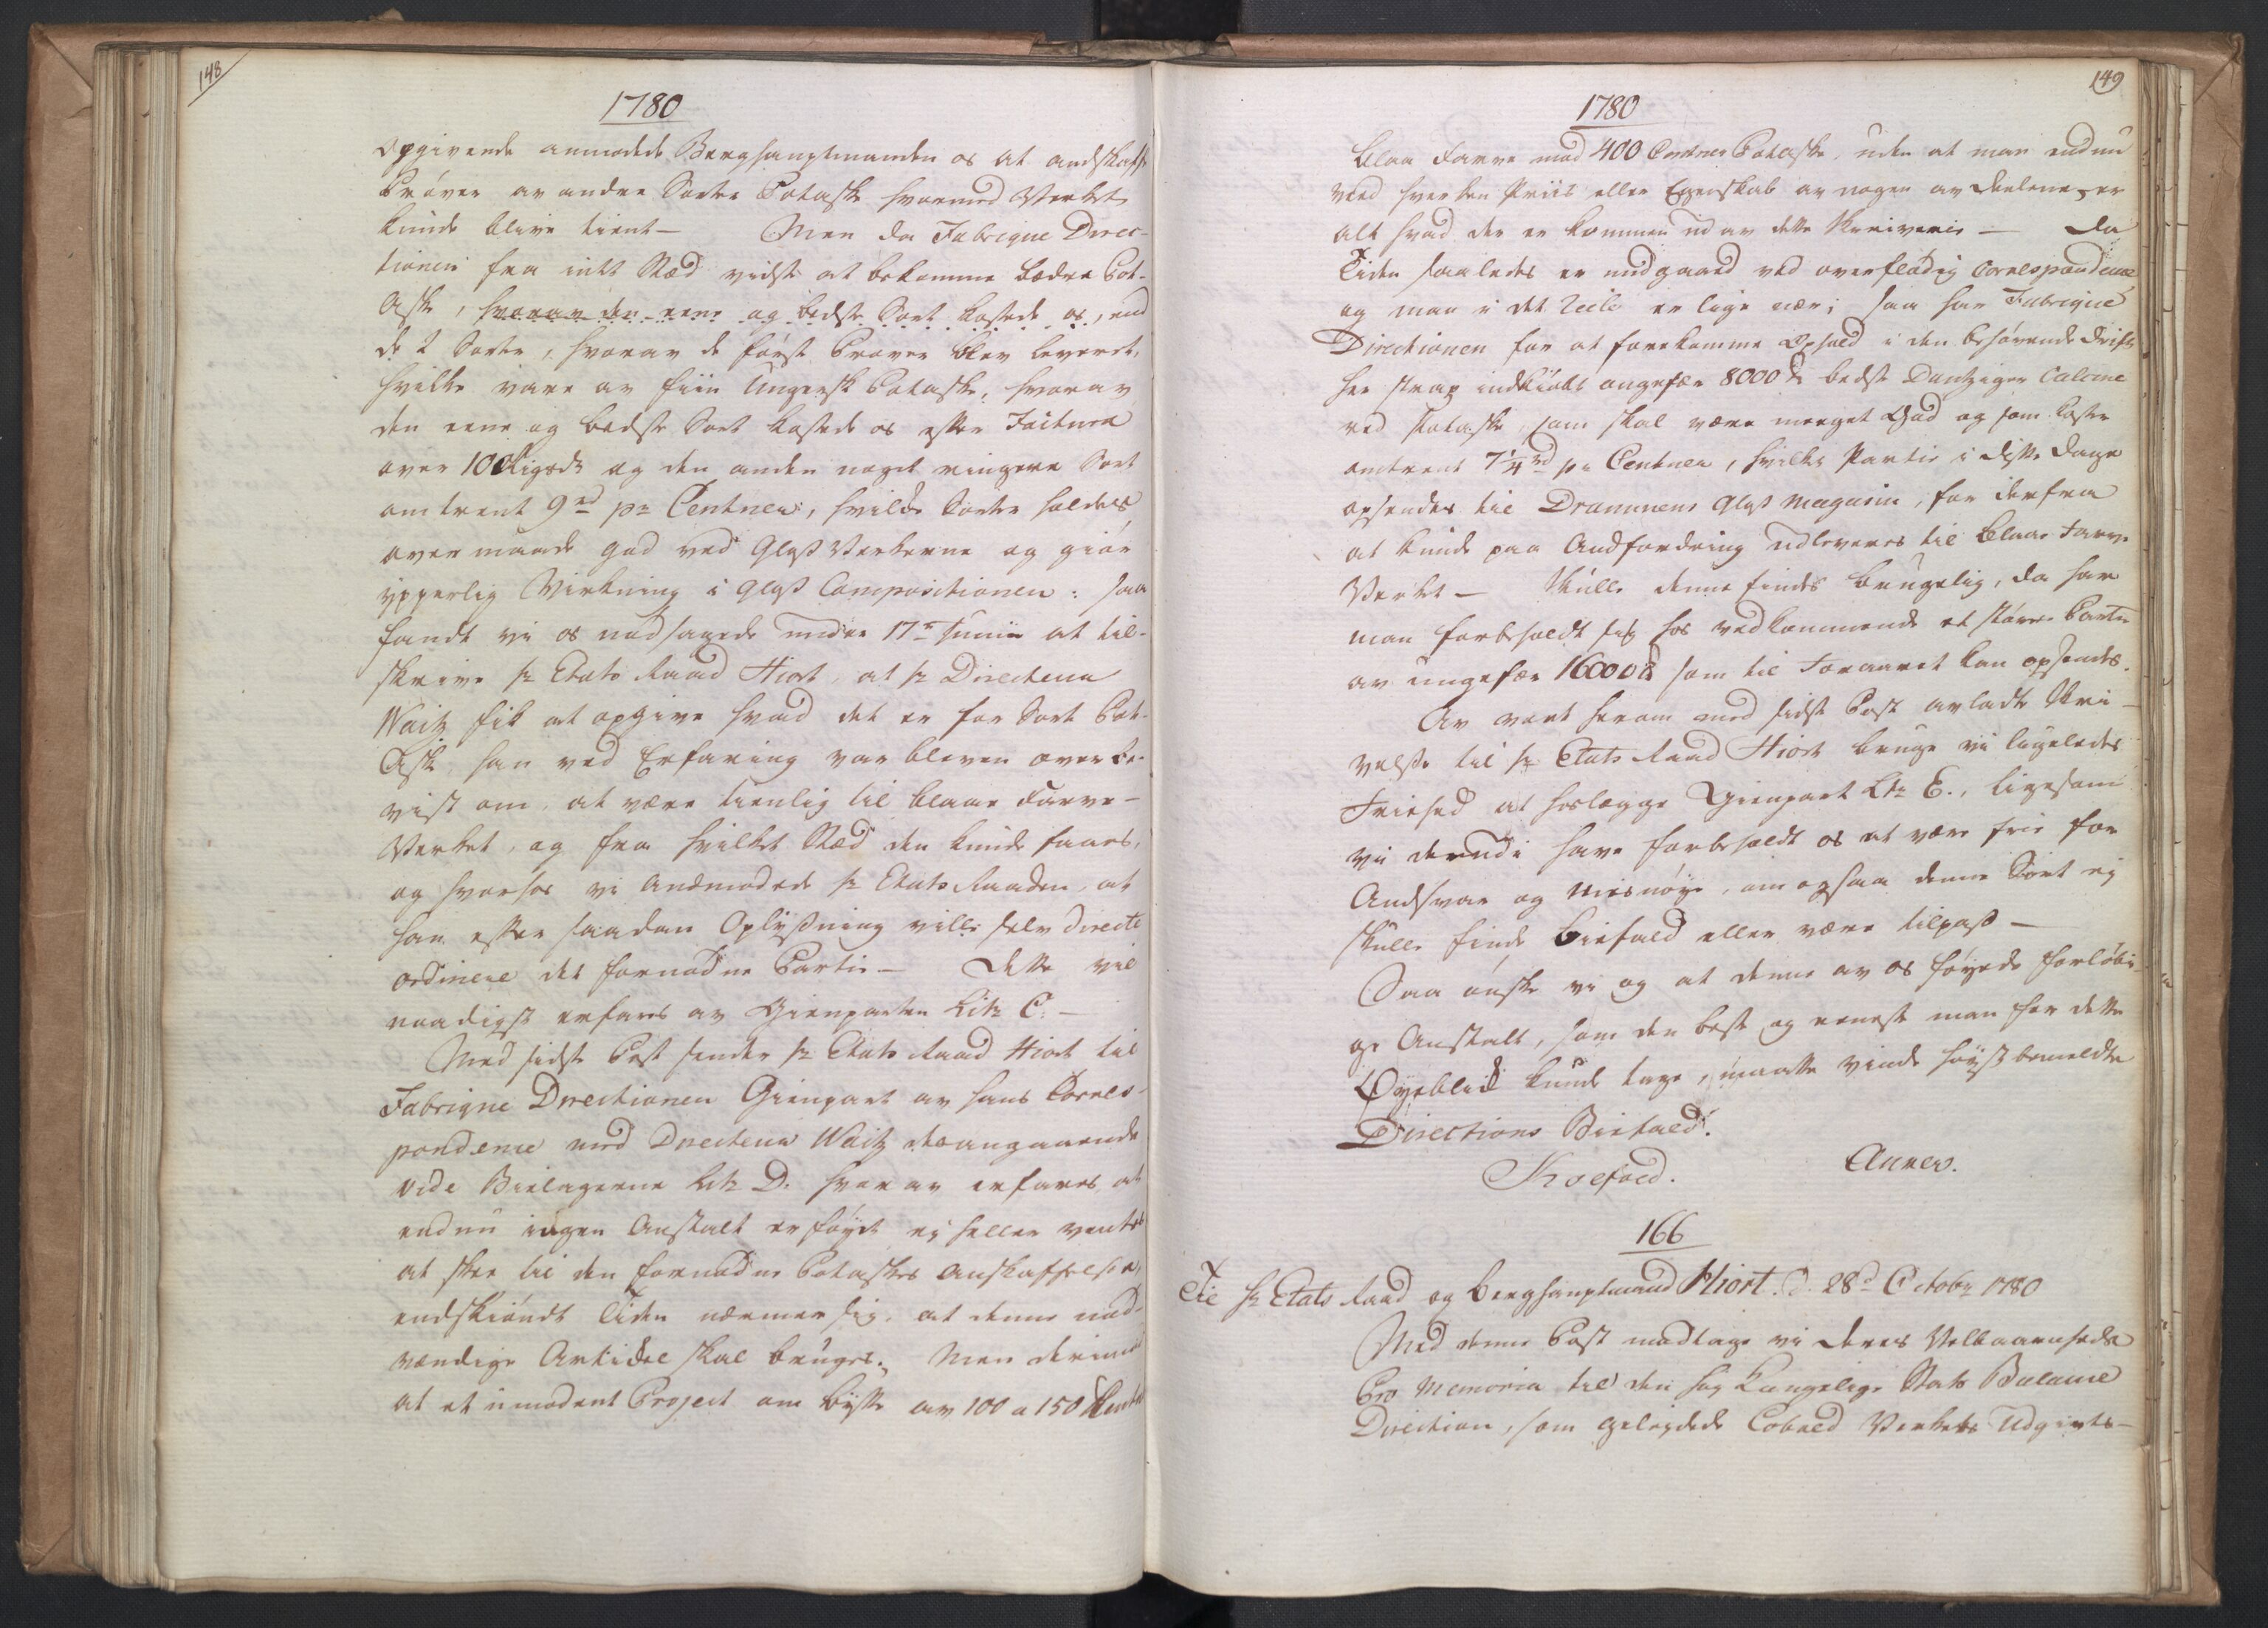 148
1780
opgivende anmodede Berghauptmanden os at andskaffe
Prøver av andre Sorter Potaske hvormed Verket
kunde blive tient — Men da Fabrique Direc-
tionen fra intet Stæd vidste at bekomme bedre Pot-
Aske, hvorav den eene og bedste Sort kostede os, end
de 2 Sorter, hvorav de første Prøver blev leveret,
hvilke vare av fiin Ungersk Potaske, hvorav
den eene og bedste Sort kostede os efter Factura
over 10 Rigsdr og den anden noget ringere Sort
omtrent 9 rd pr Centner, hvilke Sorter holdes
overmaade god ved Glas Verkerne og giør
ypperlig Virkning i Glas Compositionen: saa
fandt vi os nødsagede under 17de Junii at til-
skrive Hr Etats Raad Hiort, at Hr Directeur
Waitz fik at opgive hvad det er for Sort Pot-
Aske han ved Erfaring var bleven overbe-
vist om, at være tienlig til blaae Farve-
Verket, og fra hvilket Stæd den kunde faaes,
og hvorhos vi Andmodede Hr Etats Raaden, at
han efter saadan Oplysning ville selv directe
ordinere det fornødne Partie — Dette vil
naadigst erfares av Gienparten Litr C. —
Med sidste Post sender Hr Etats Raad Hiort til
Fabrique Directionen Gienpart av hans Corres-
pondence med Directeur Waitz deangaaende
vide Bielagerne Litr D. hvorav erfares at
endnu ingen Anstalt er føyet ey heller ventes
at skee til den fornødne Potaskes Anskaffelse,
endskiøndt Tiden nærmer sig, at denne nød-
vændige Artickel skal bruges. Men derimod
at et umodent Project om bytte av 100 a 150 Centner
149
1780
blaa Farve mod 400 Centner Potaske, uden at man endnu
veed hverken Priis eller Egenskab av nogen av Deelene, er
alt hvad der er kommen ud av dette Skriverie — Da
Tiden saaledes er medgaaed ved overflødig Correspondence
og man i det Reele er lige nær; saa har Fabrique
Directionen for at forekomme Ophold i den behøvende Drift
her strax indkiøbt ongefær 8000 lb bedste Dantziger Calcine
red Potaske, som skal være meeget god og som koster
omtrent 7 1/4 rd pr Centner, hvilket Partie i disse Dage
opsendes til Drammens Glas Magasin, for derfra
at kunde paa Andfordring udleveres til blaae Farve
Verket — Skulle denne findes brugelig, da har
man forbeholdt sig hos vedkommende et større Partie
av ungefær 16000 lb som til Foraaret kan opsendes.
Av vort herom med sidste Post avladte Skri-
velse til Hr Etats Raad Hiort bruge vi ligeledes
Friehed at hoslægge Gienpart Litr E., ligesom
vi derudi have forbeholdt os at være frie for
Andsvar og Misnøye, om ogsaa denne Sort ey
skulle finde Biefald eller være tilpas —
Saa ønske vi og at denne av os føyede forløbi-
ge Anstalt, som den beste og eeneste man for dette
Øyeblick kunde tage, maatte vinde høystbemeldte
Directions Biefald.
Thoefoed. Anker.
166
Til Hr Etats Raad og Berghauptmand Hiort. D. 28d Octobr 1780
Med denne Post modtage vi Deres Velbaarenheds
Pro Memoria til den høy Kongelige Stats Balance
Direction, som geleydede Cobold Verkets Udgivts-